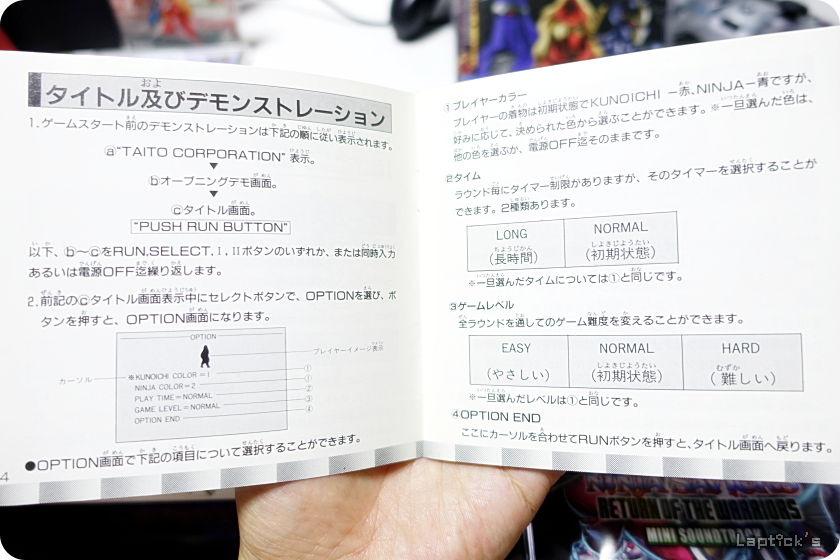 タイトル及びデモンストレーション
1.ゲームスタート前のデモンストレーションは下記の順に従い表示されます。
ⓐ“TAITO CORPORATION” 表示。
▼
ⓑオープニングデモ画面。
▼
ⓒタイトル画面。
“PUSH RUN BUTTON”
以下、ⓑ〜ⓒをRUN,SELECT,Ⅰ,Ⅱボタンのいずれか、または同時入力
あるいは電源OFF迄繰り返します。
2.前記のⓒタイトル画面表示中にセレクトボタンで、OPTIONを選び、ボ
タンを押すと、OPTION画面になります。
OPTION
プレイヤーイメージ表示
カーソル
※KUNOICHI COLOR=1 ①
NINJA COLOR=2 ①
PLAY TIME=NORMAL ②
GAME LEVEL=NORMAL ③
OPTION END ④
●OPTION画面で下記の項目について選択することができます。
4
①プレイヤーカラー
プレイヤーの着物は初期状態でKUNOICHI ー赤、NINJAー青ですが、
好みに応じて、決められた色から選ぶことができます。※一旦選んだ色は、
他の色を選ぶか、電源OFF迄そのままです。
②タイム
ラウンド毎にタイマー制限がありますが、そのタイマーを選択することが
できます。2種類あります。
LONG NORMAL
(長時間) (初期状態)
※一旦選んだタイムについては①と同じです。
③ゲームレベル
全ラウンドを通してのゲーム難度を変えることができます。
EASY NORMAL HARD
(やさしい) (初期状態) (難しい)
※一旦選んだレベルは①と同じです。
④OPTION END
ここにカーソルを合わせてRUNボタンを押すと、タイトル画面へ戻ります。
RETURN OF THE WARRIORS
MINI SOUNDTRACK
Laptick's